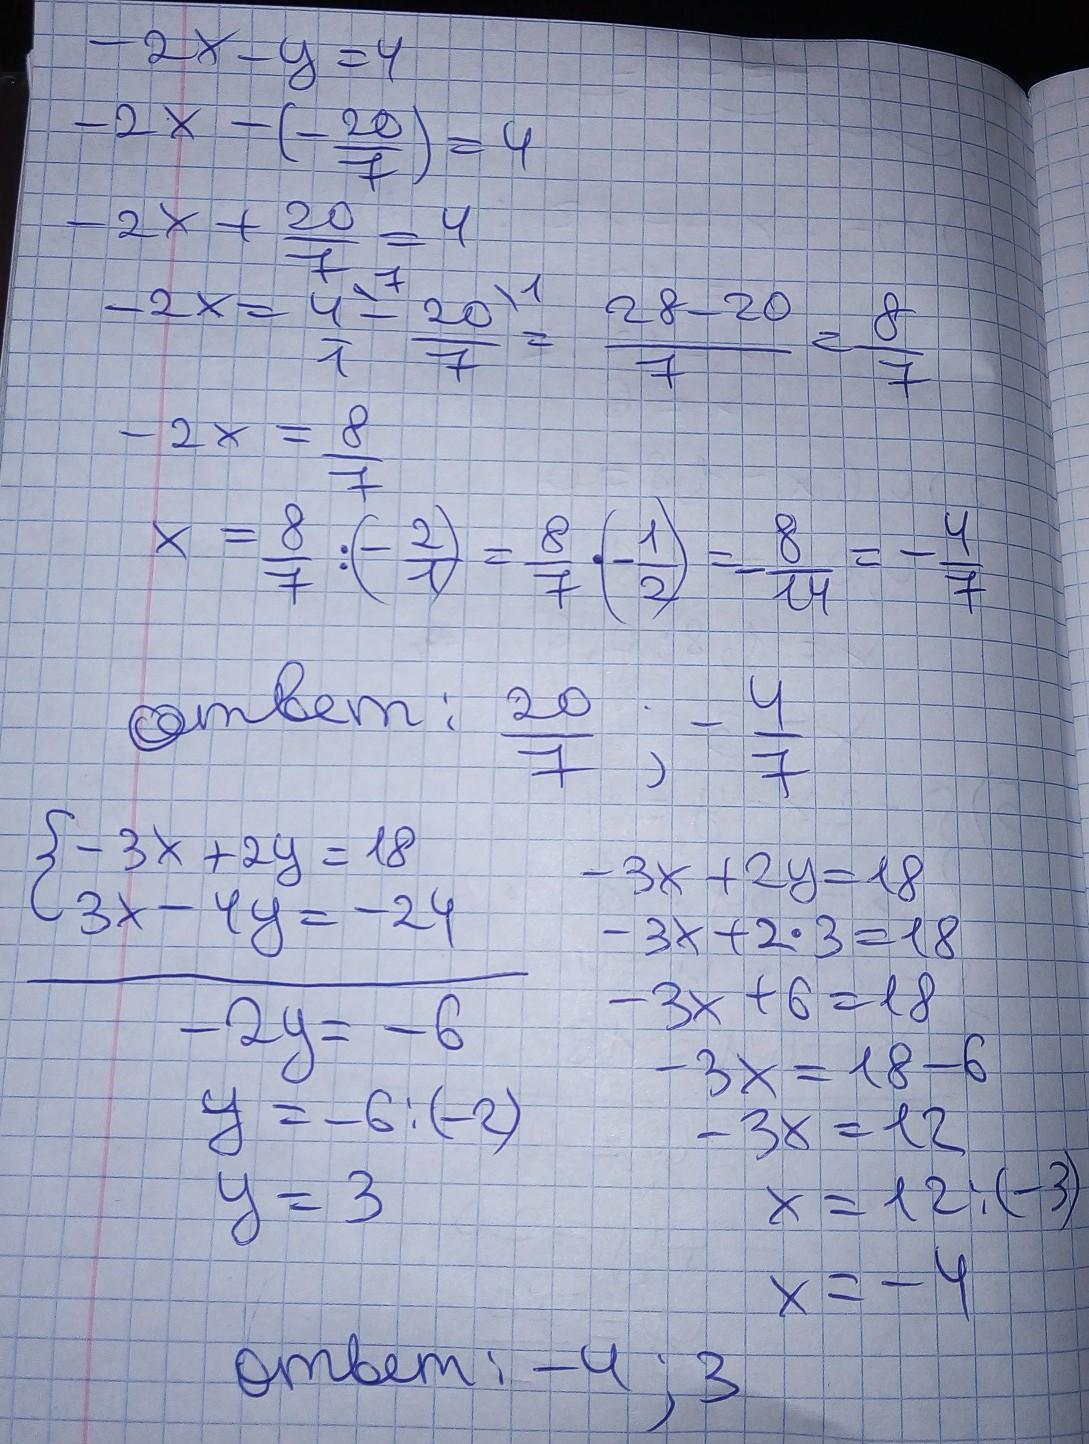 -2x-y=4
-2x-(-20/7)=4
-2x+20/7=4
-2x=4/1\7-20/7\1=28-20/7=8/7
-2x=8/7
x=8/7:(-2/1)=8/7·(-1/2)=-8/14=-4/7
ответ: 20/7; -4/7
{-3x+2y=18
3x-4y=-24
-2y=-6
y=-6:(-2)
y=3
-3x+2y=18
-3x+2·3=18
-3x+6=18
-3x=18-6
-3x=12
x=12:(-3)
x=-4
ответ: -4; 3